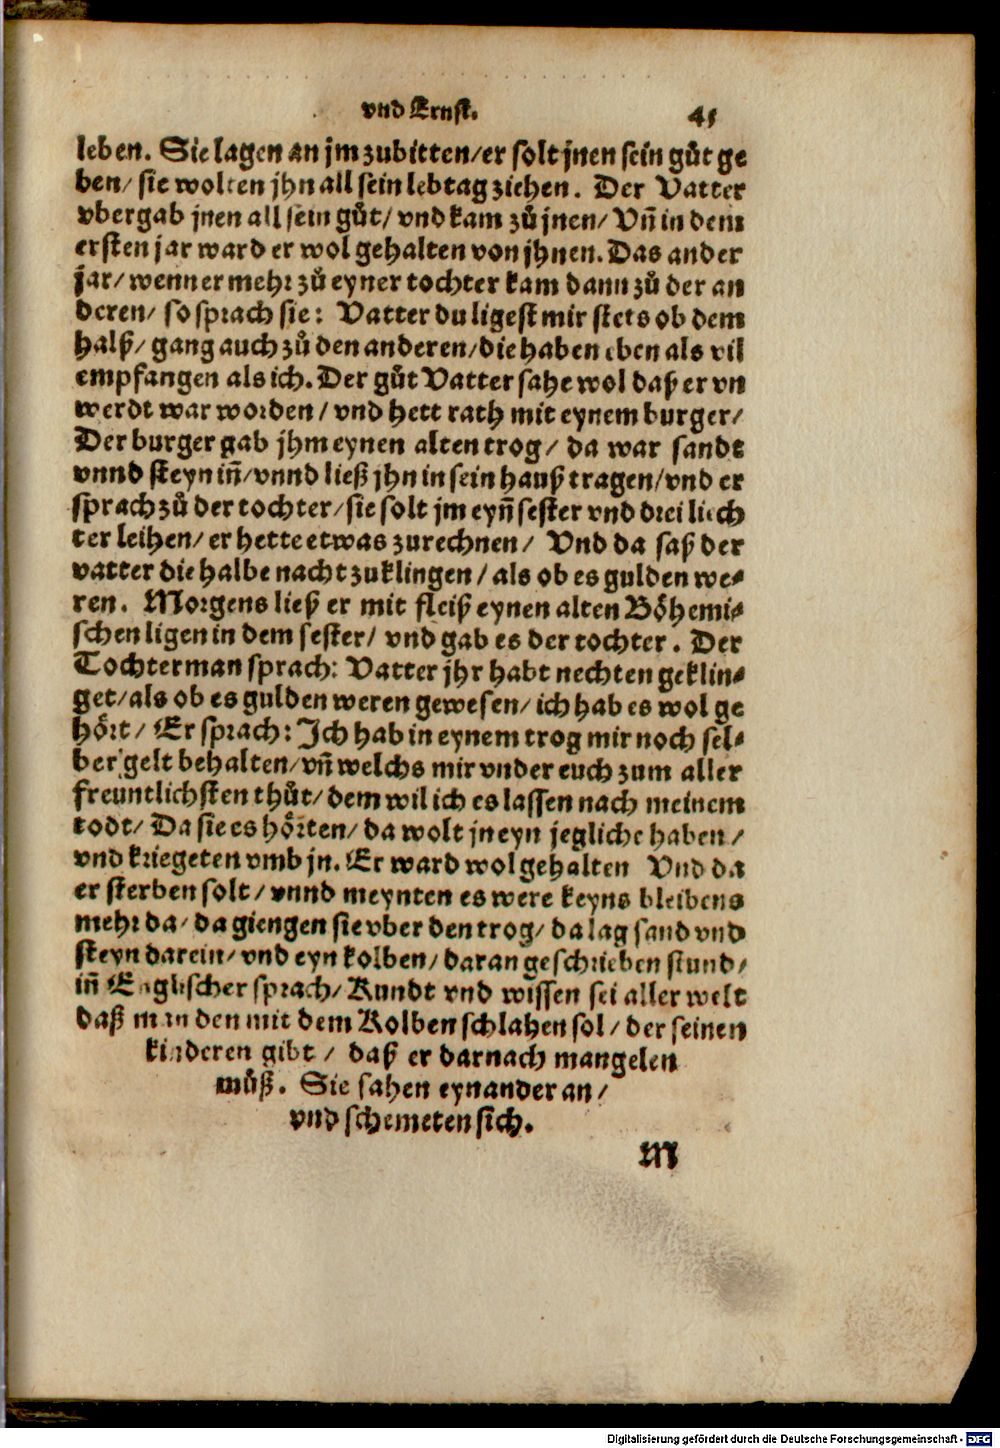 vnd Ernst. 45
leben. Sie lagen an jm zubitten/er solt jnen sein gůt ge
ben/ sie wolten jhn all sein lebtag ziehen. Der Vatter
vbergab jnen all sein gůt/ vnd kam zů jnen/ Vñ in dem
ersten jar ward er wol gehalten von jhnen. Das ander
jar/ wenn er mehr zů eyner tochter kam dann zů der an
deren/ so sprach sie: Vatter du ligest mir stets ob dem
halß/ gang auch zů den anderen/die haben eben als vil
empfangen als ich. Der gůt Vatter sahe wol daß er vn
werdt war worden/ vnd hett rath mit eynem burger/
Der burger gab jhm eynen alten trog/ da war sandt
vnnd steyn iñ/vnnd ließ jhn in sein hauß tragen/vnd er
sprach zů der tochter/sie solt jm eyñ sester vnd drei liech
ter leihen/ er hette etwas zurechnen/ Vnd da saß der
vatter die halbe nacht zuklingen/ als ob es gulden we⸗
ren. Morgens ließ er mit fleiß eynen alten Bőhemi⸗
schen ligen in dem sester/ vnd gab es der tochter. Der
Tochterman sprach: Vatter jhr habt nechten geklin⸗
get/als ob es gulden weren gewesen/ ich hab es wol ge
hőrt/ Er sprach: Ich hab in eynem trog mir noch sel⸗
ber gelt behalten/vñ welchs mir vnder euch zum aller
freuntlichsten thůt/ dem wil ich es lassen nach meinem
todt/ Da sie es hőrten/ da wolt jn eyn jegliche haben/
vnd kriegeten vmb jn. Er ward wol gehalten Vnd da
er sterben solt/ vnnd meynten es were keyns bleibens
mehr da/ da giengen sie vber den trog/ da lag sand vnd
steyn darein/ vnd eyn kolben/ daran geschrieben stund/
iñ Englischer sprach/ Kundt vnd wissen sei aller welt
daß man den mit dem Kolben schlahen sol/ der seinen
kinderen gibt/ daß er darnach mangelen
můß. Sie sahen eynander an/
vnd schemeten sich.
M
Digitalisierung gefördert durch die Deutsche Forschungsgemeinschaft - DFG